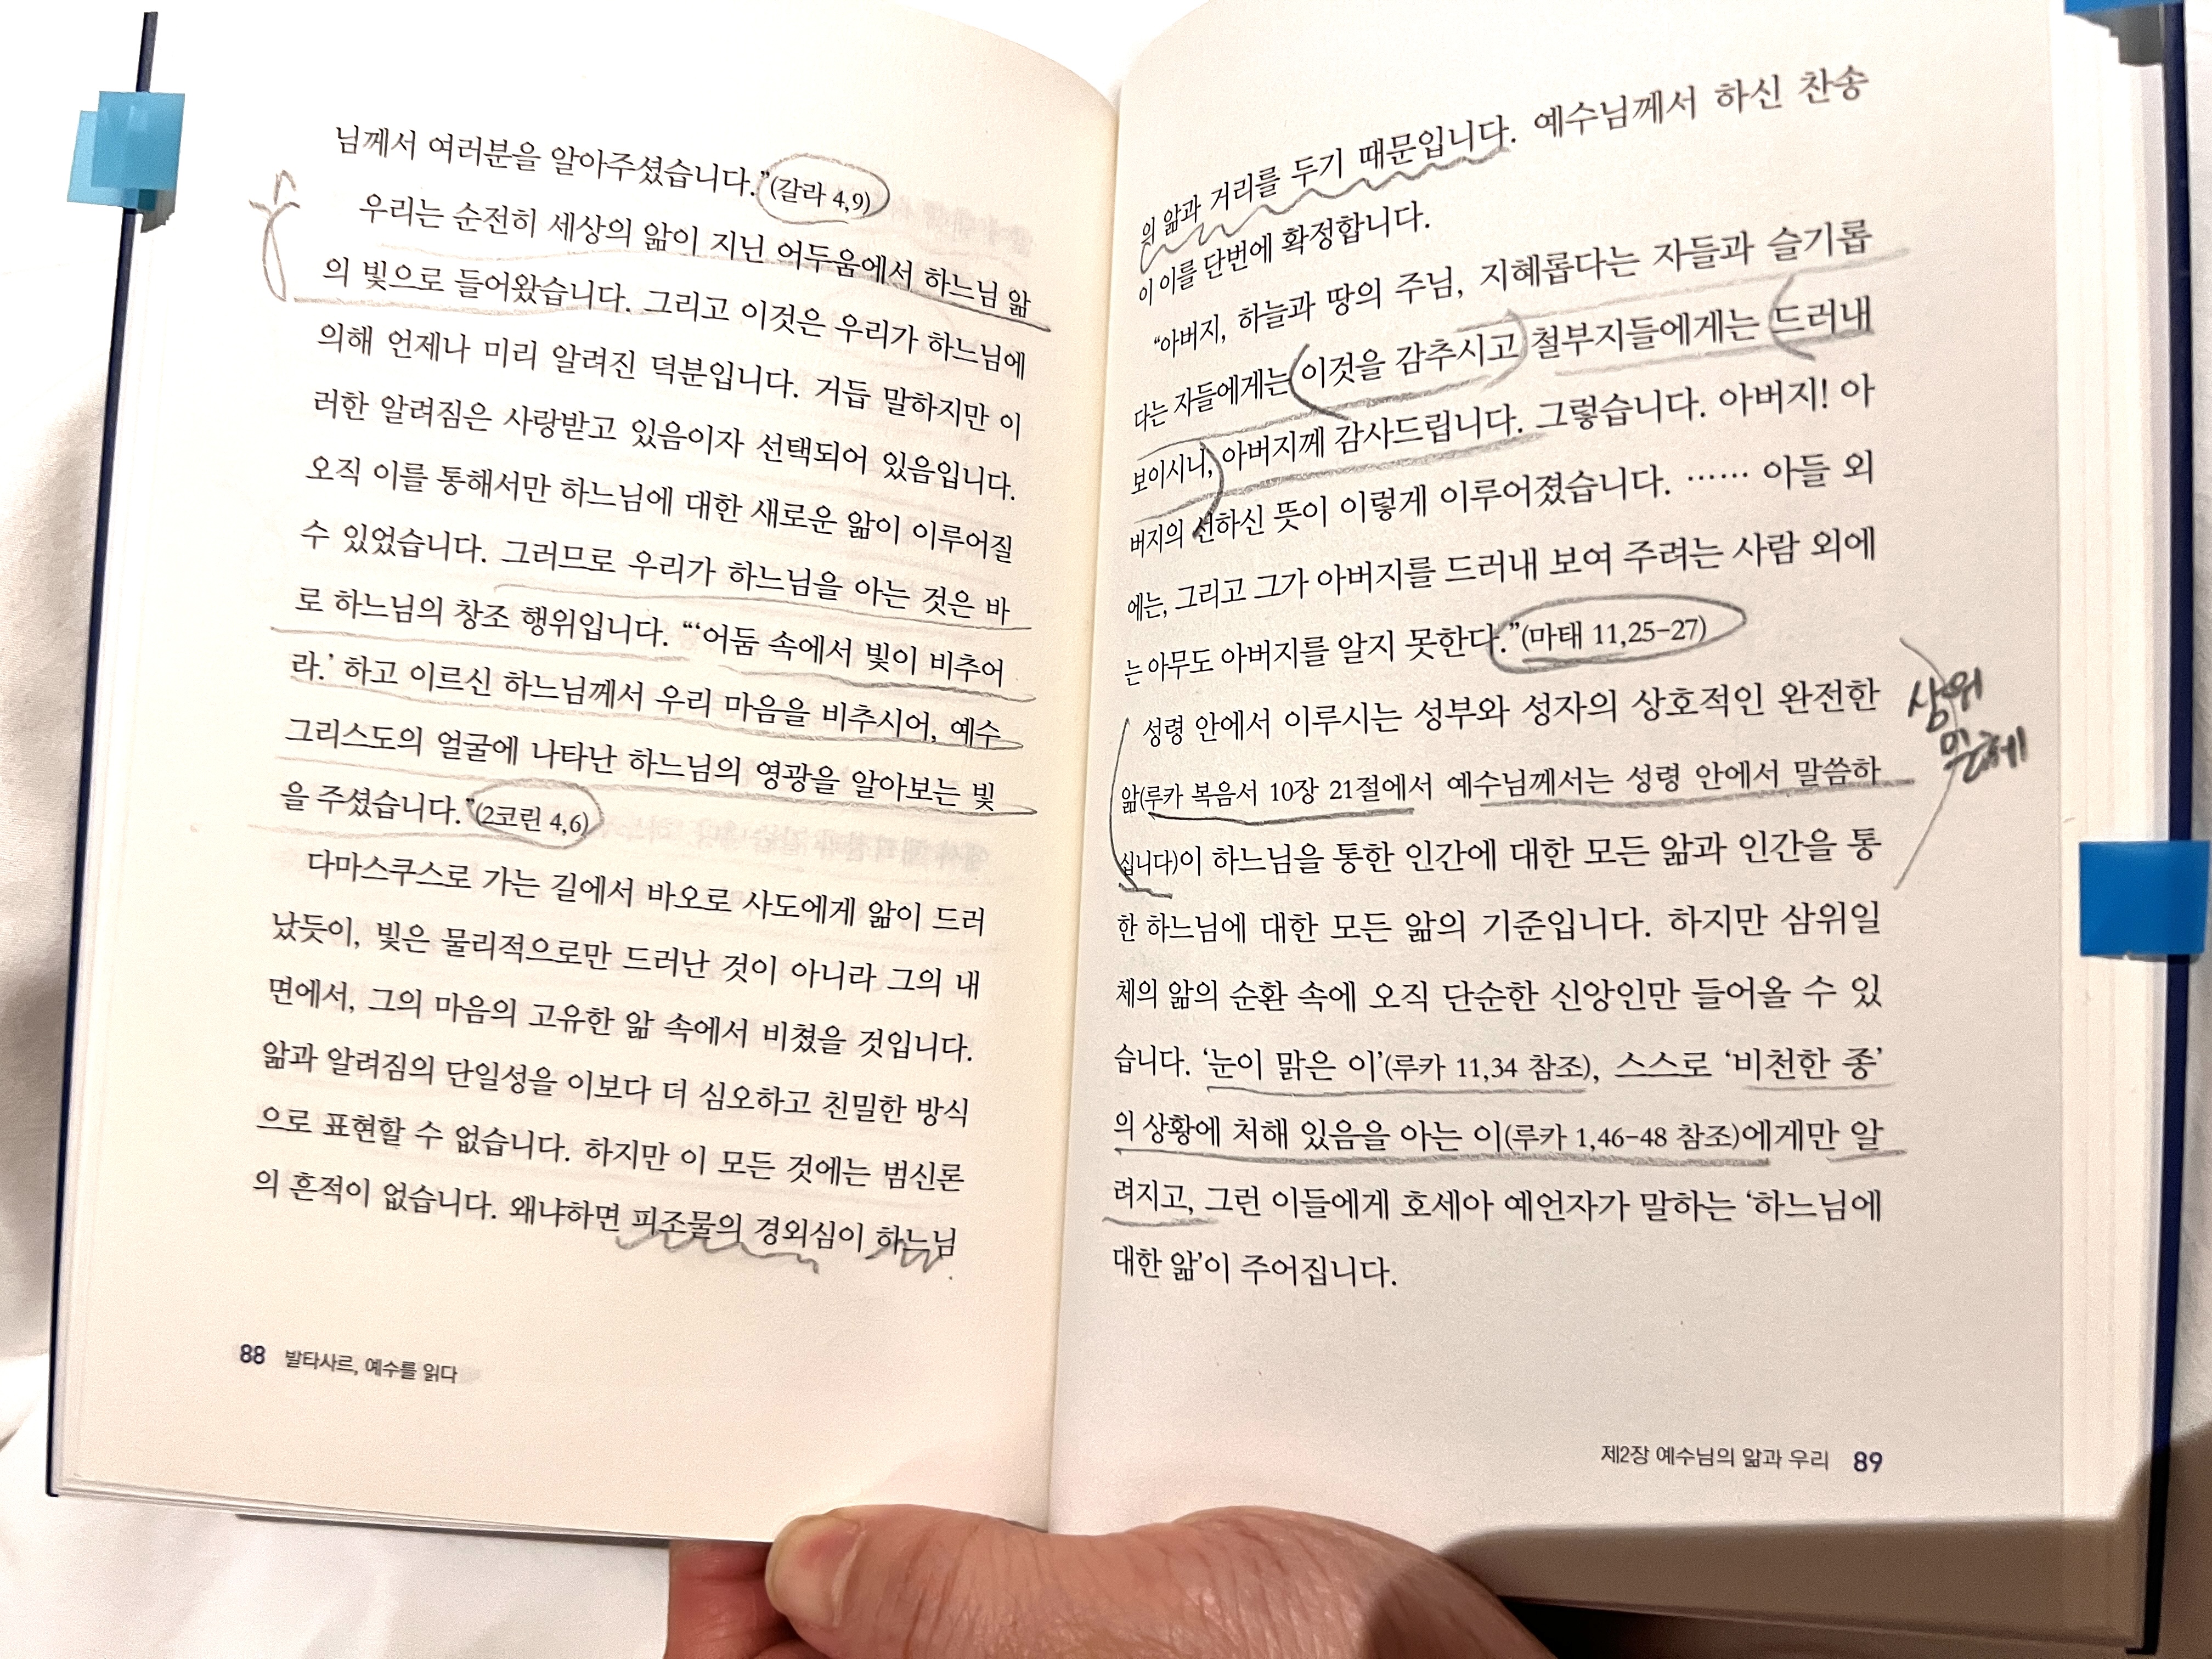 님께서 여러분을 알아주셨습니다.”(갈라 4,9)
우리는 순전히 세상의 앎이 지닌 어두움에서 하느님 앎
의 빛으로 들어왔습니다. 그리고 이것은 우리가 하느님에
의해 언제나 미리 알려진 덕분입니다. 거듭 말하지만 이
러한 알려짐은 사랑받고 있음이자 선택되어 있음입니다.
오직 이를 통해서만 하느님에 대한 새로운 앎이 이루어질
수 있었습니다. 그러므로 우리가 하느님을 아는 것은 바
로 하느님의 창조 행위입니다. “‘어둠 속에서 빛이 비추어
라.’ 하고 이르신 하느님께서 우리 마음을 비추시어, 예수
그리스도의 얼굴에 나타난 하느님의 영광을 알아보는 빛
을 주셨습니다.”(2코린 4,6)
다마스쿠스로 가는 길에서 바오로 사도에게 앎이 드러
났듯이, 빛은 물리적으로만 드러난 것이 아니라 그의 내
면에서, 그의 마음의 고유한 앎 속에서 비쳤을 것입니다.
앎과 알려짐의 단일성을 이보다 더 심오하고 친밀한 방식
으로 표현할 수 없습니다. 하지만 이 모든 것에는 범신론
의 흔적이 없습니다. 왜냐하면 피조물의 경외심이 하느님
88 발타사르, 예수를 읽다
의 앎과 거리를 두기 때문입니다. 예수님께서 하신 찬송
이 이를 단번에 확정합니다.
“아버지, 하늘과 땅의 주님, 지혜롭다는 자들과 슬기롭
다는 자들에게는 이것을 감추시고 철부지들에게는 드러내
보이시니, 아버지께 감사드립니다. 그렇습니다. 아버지! 아
버지의 선하신 뜻이 이렇게 이루어졌습니다. …… 아들 외
에는, 그리고 그가 아버지를 드러내 보여 주려는 사람 외에
는 아무도 아버지를 알지 못한다.”(마태 11,25-27)
성령 안에서 이루시는 성부와 성자의 상호적인 완전한
앎(루카 복음서 10장 21절에서 예수님께서는 성령 안에서 말씀하
십니다)이 하느님을 통한 인간에 대한 모든 앎과 인간을 통
한 하느님에 대한 모든 앎의 기준입니다. 하지만 삼위일
체의 앎의 순환 속에 오직 단순한 신앙인만 들어올 수 있
습니다. ‘눈이 맑은 이’(루카 11,34 참조), 스스로 ‘비천한 종’
의 상황에 처해 있음을 아는 이(루카 1,46-48 참조)에게만 알
려지고, 그런 이들에게 호세아 예언자가 말하는 ‘하느님에
대한 앎’이 주어집니다.
삼위
제2장 예수님의 앎과 우리 89